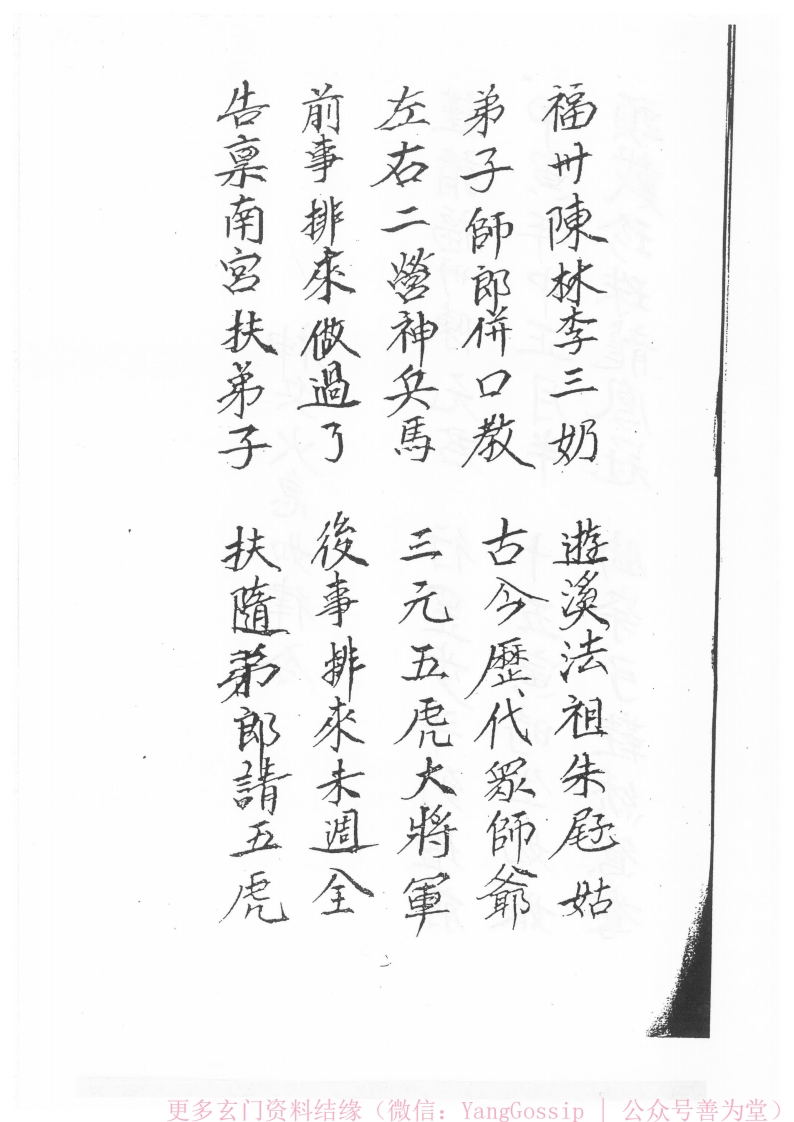 福卅陳林李三奶 遊溪法祖朱𡱈姑
弟子師郎併口教 古今歷代眾師爺
左右二營神兵馬 三元五虎大將軍
前事排來做過了 後事排來未週全
告稟南宮扶弟子 扶隨弟郎請五虎
更多玄门资料结缘（微信：YangGossip | 公众号善为堂）